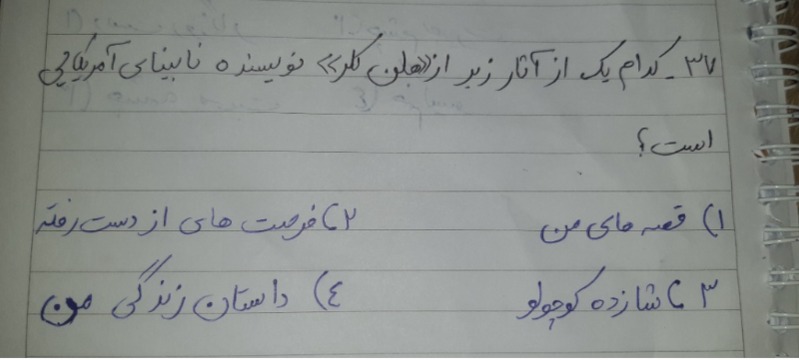 ۳۷_ کدام یک از آثار زیر از «هلن کلر» نویسنده نابینای آمریکایی
است؟
۱) قصه های من ۲) فرصت های از دست رفته
۳) شازده کوچولو ٤) داستان زندگی من